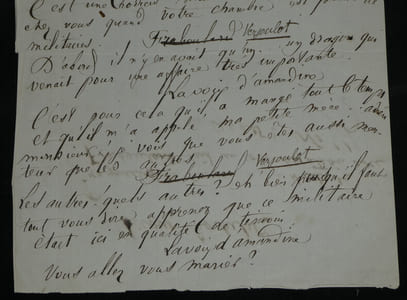 C'est une horreur
chez vous quand votre chambre est
militaires.
Verjoulot
D'abord il n'y en avait qu'un. un dragon qui
venait pour une affaire très importante.
La voix d'amandine
C'est pour cela qu'il a mangé tout le temps
et qu'il m'a appelé ma petite mère. adieu
vous que vous êtes aussi men-
teur que les autres
Verjoulot
Les autres! quels autres? eh bien puisqu'il faut
tout vous dire apprenez que ce militaire
était ici en qualité de témoin
La voix d'amandine
Vous allez vous marier?